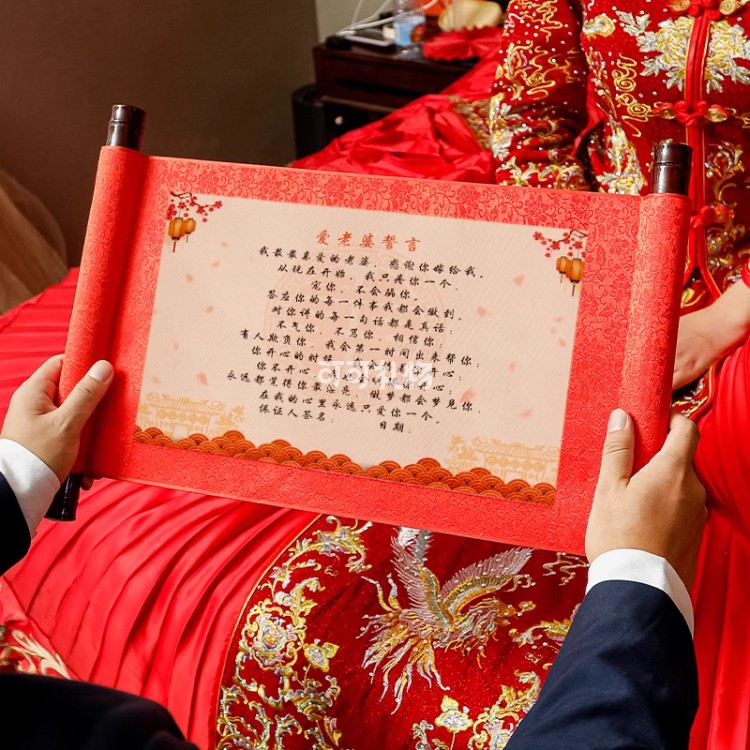 爱老婆誓言
我最最亲爱的老婆，感谢你嫁给我。
从现在开始，我只疼你一个，
宠你，不会骗你。
答应你的每一件事我都会做到，
对你讲的每一句话都是真话；
不气你，不骂你，相信你；
有人欺负你，我会第一时间出来帮你；
你开心的时候 开心；
你不开心 心；
永远都觉得你最漂亮，做梦都会梦见你，
在我的心里永远只爱你一个。
保证人签名： 日期：
可可礼坊